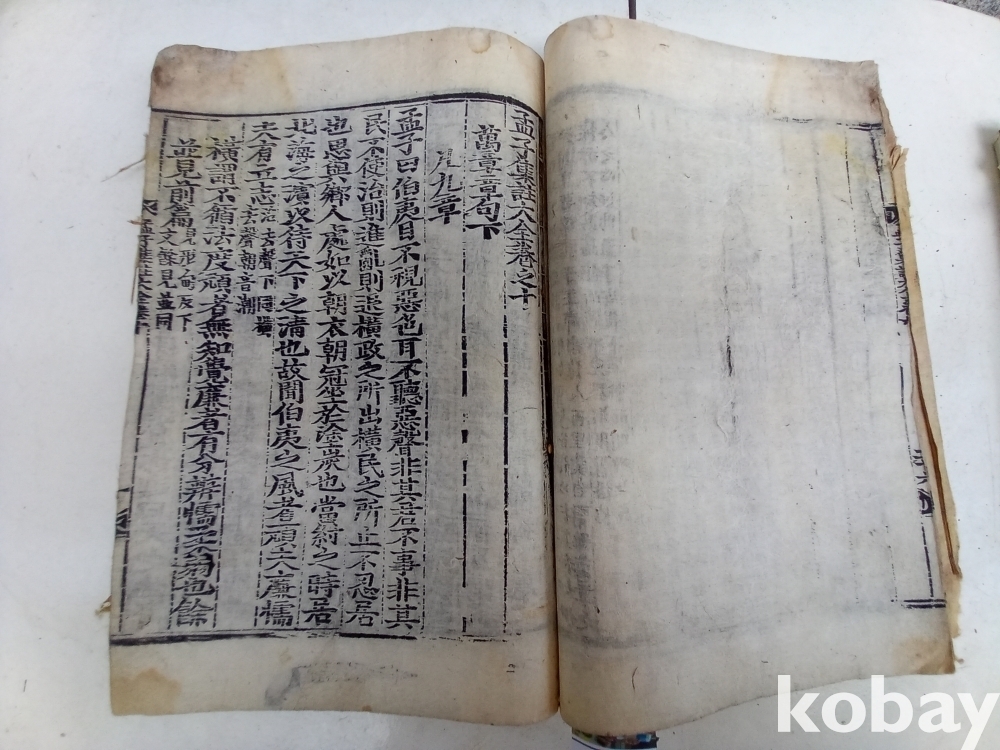 孟子集註大全卷之十
萬章章句下
凡九章
孟子曰伯夷目不視惡色耳不聽惡聲非其君不事非其
民不使治則進亂則退橫政之所出橫民之所止不忍居
也思與鄕人處如以朝衣朝冠坐於塗炭也當紂之時居
北海之濱以待天下之淸也故聞伯夷之風者頑夫廉懦
夫有立志治去聲下同橫
去聲朝音潮
橫謂不循法度頑者無知覺廉者有分辨懦柔弱也餘
並見前篇見形甸反下
文餘見並同
kobay